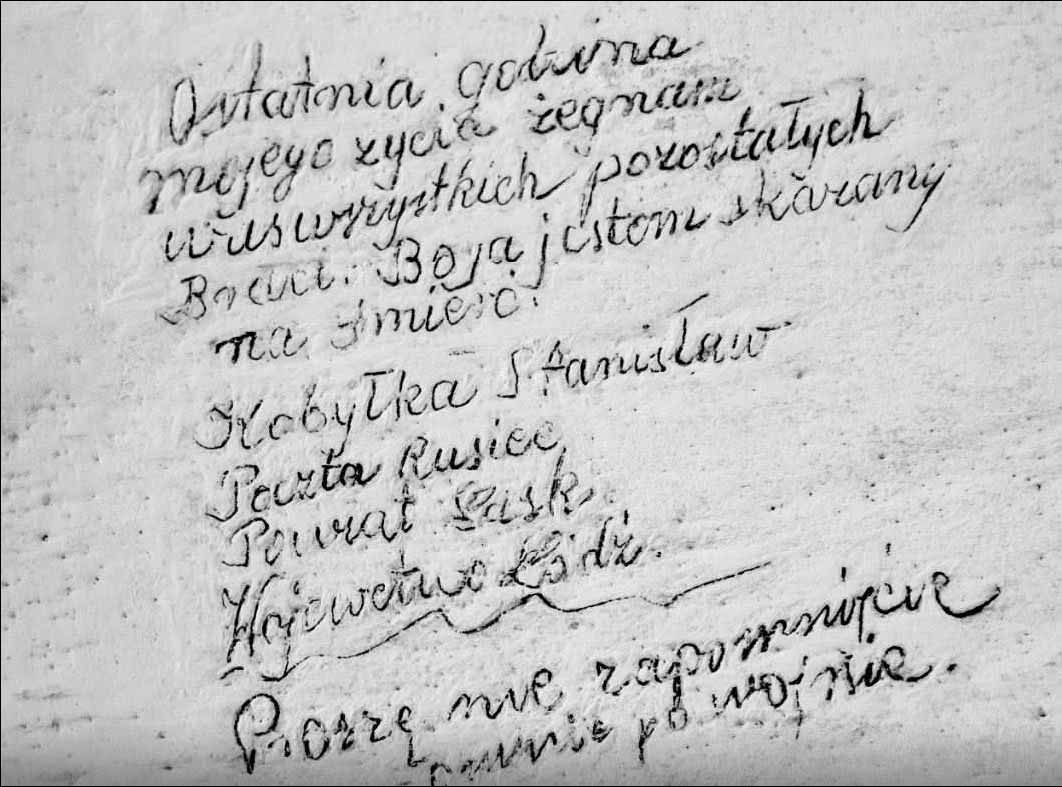 Ostatnia godzina
mojego zycia żegnam
was wszystkich pozostałych
Braci. Bo ja jestem skazany
na śmierć.
Kobyłka Stanisław
Poczta Rusiec
Powiat Łask
Wojewctwo Łódź.
Proszę nie zapomnijcie
o mnie po wojnie.